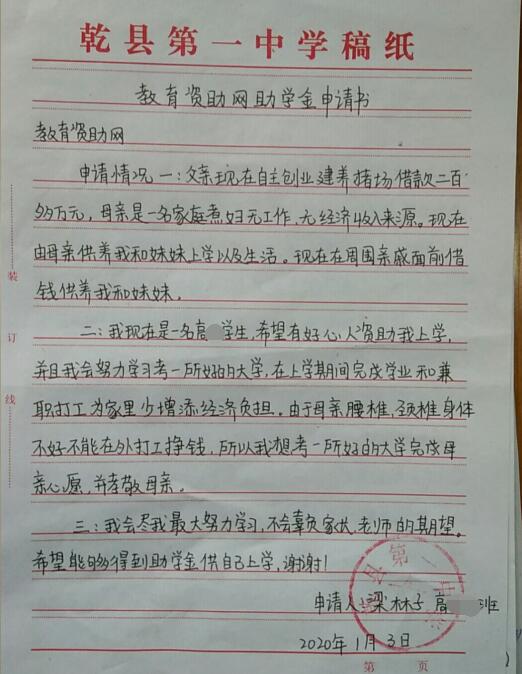 乾县第一中学稿纸
教育资助网助学金申请书
教育资助网
申请情况一:父亲现在自主创业建养猪场借款二百
多万元,母亲是一名家庭煮妇无工作、无经济收入来源。现在
由母亲供养我和妹妹上学以及生活。现在在周围亲戚面前借
钱供养我和妹妹.
二:我现在是一名高 学生,希望有好心人资助我上学,
并且我会努力学习考一所好的大学,在上学期间完成学业和兼
职打工为家里少增添经济负担。由于母亲腰椎、颈椎身体
不好不能在外打工挣钱,所以我想考一所好的大学完成母
亲心愿,并孝敬母亲。
三:我会尽我最大努力学习,不会辜负家长、老师的期望。
希望能够得到助学金供自己上学,谢谢!
申请人:梁林子 高 班
2020年1月3日
第 页
装
订
线
县第一中学